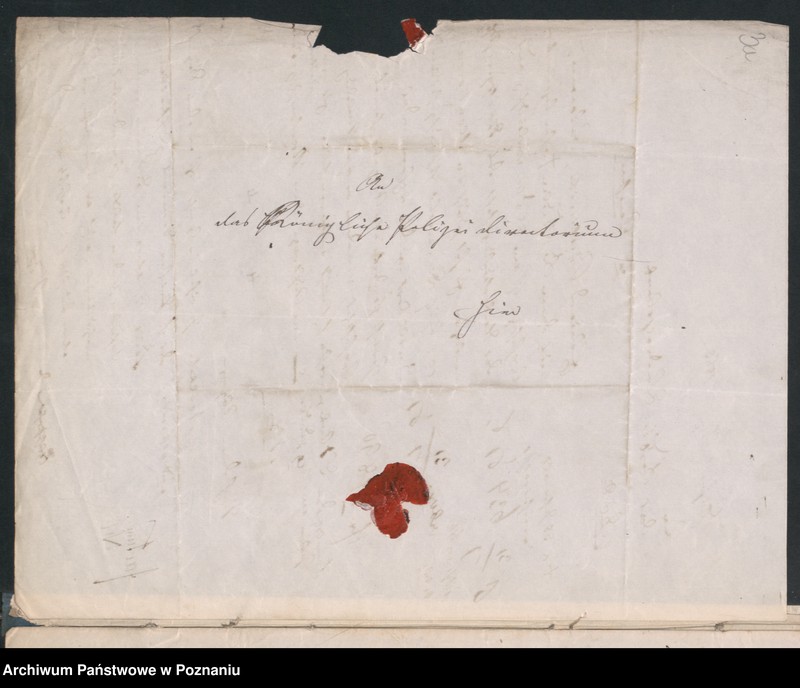 3a
An
das Königliche Polizei directorium
hier
Archiwum Państwowe w Poznaniu